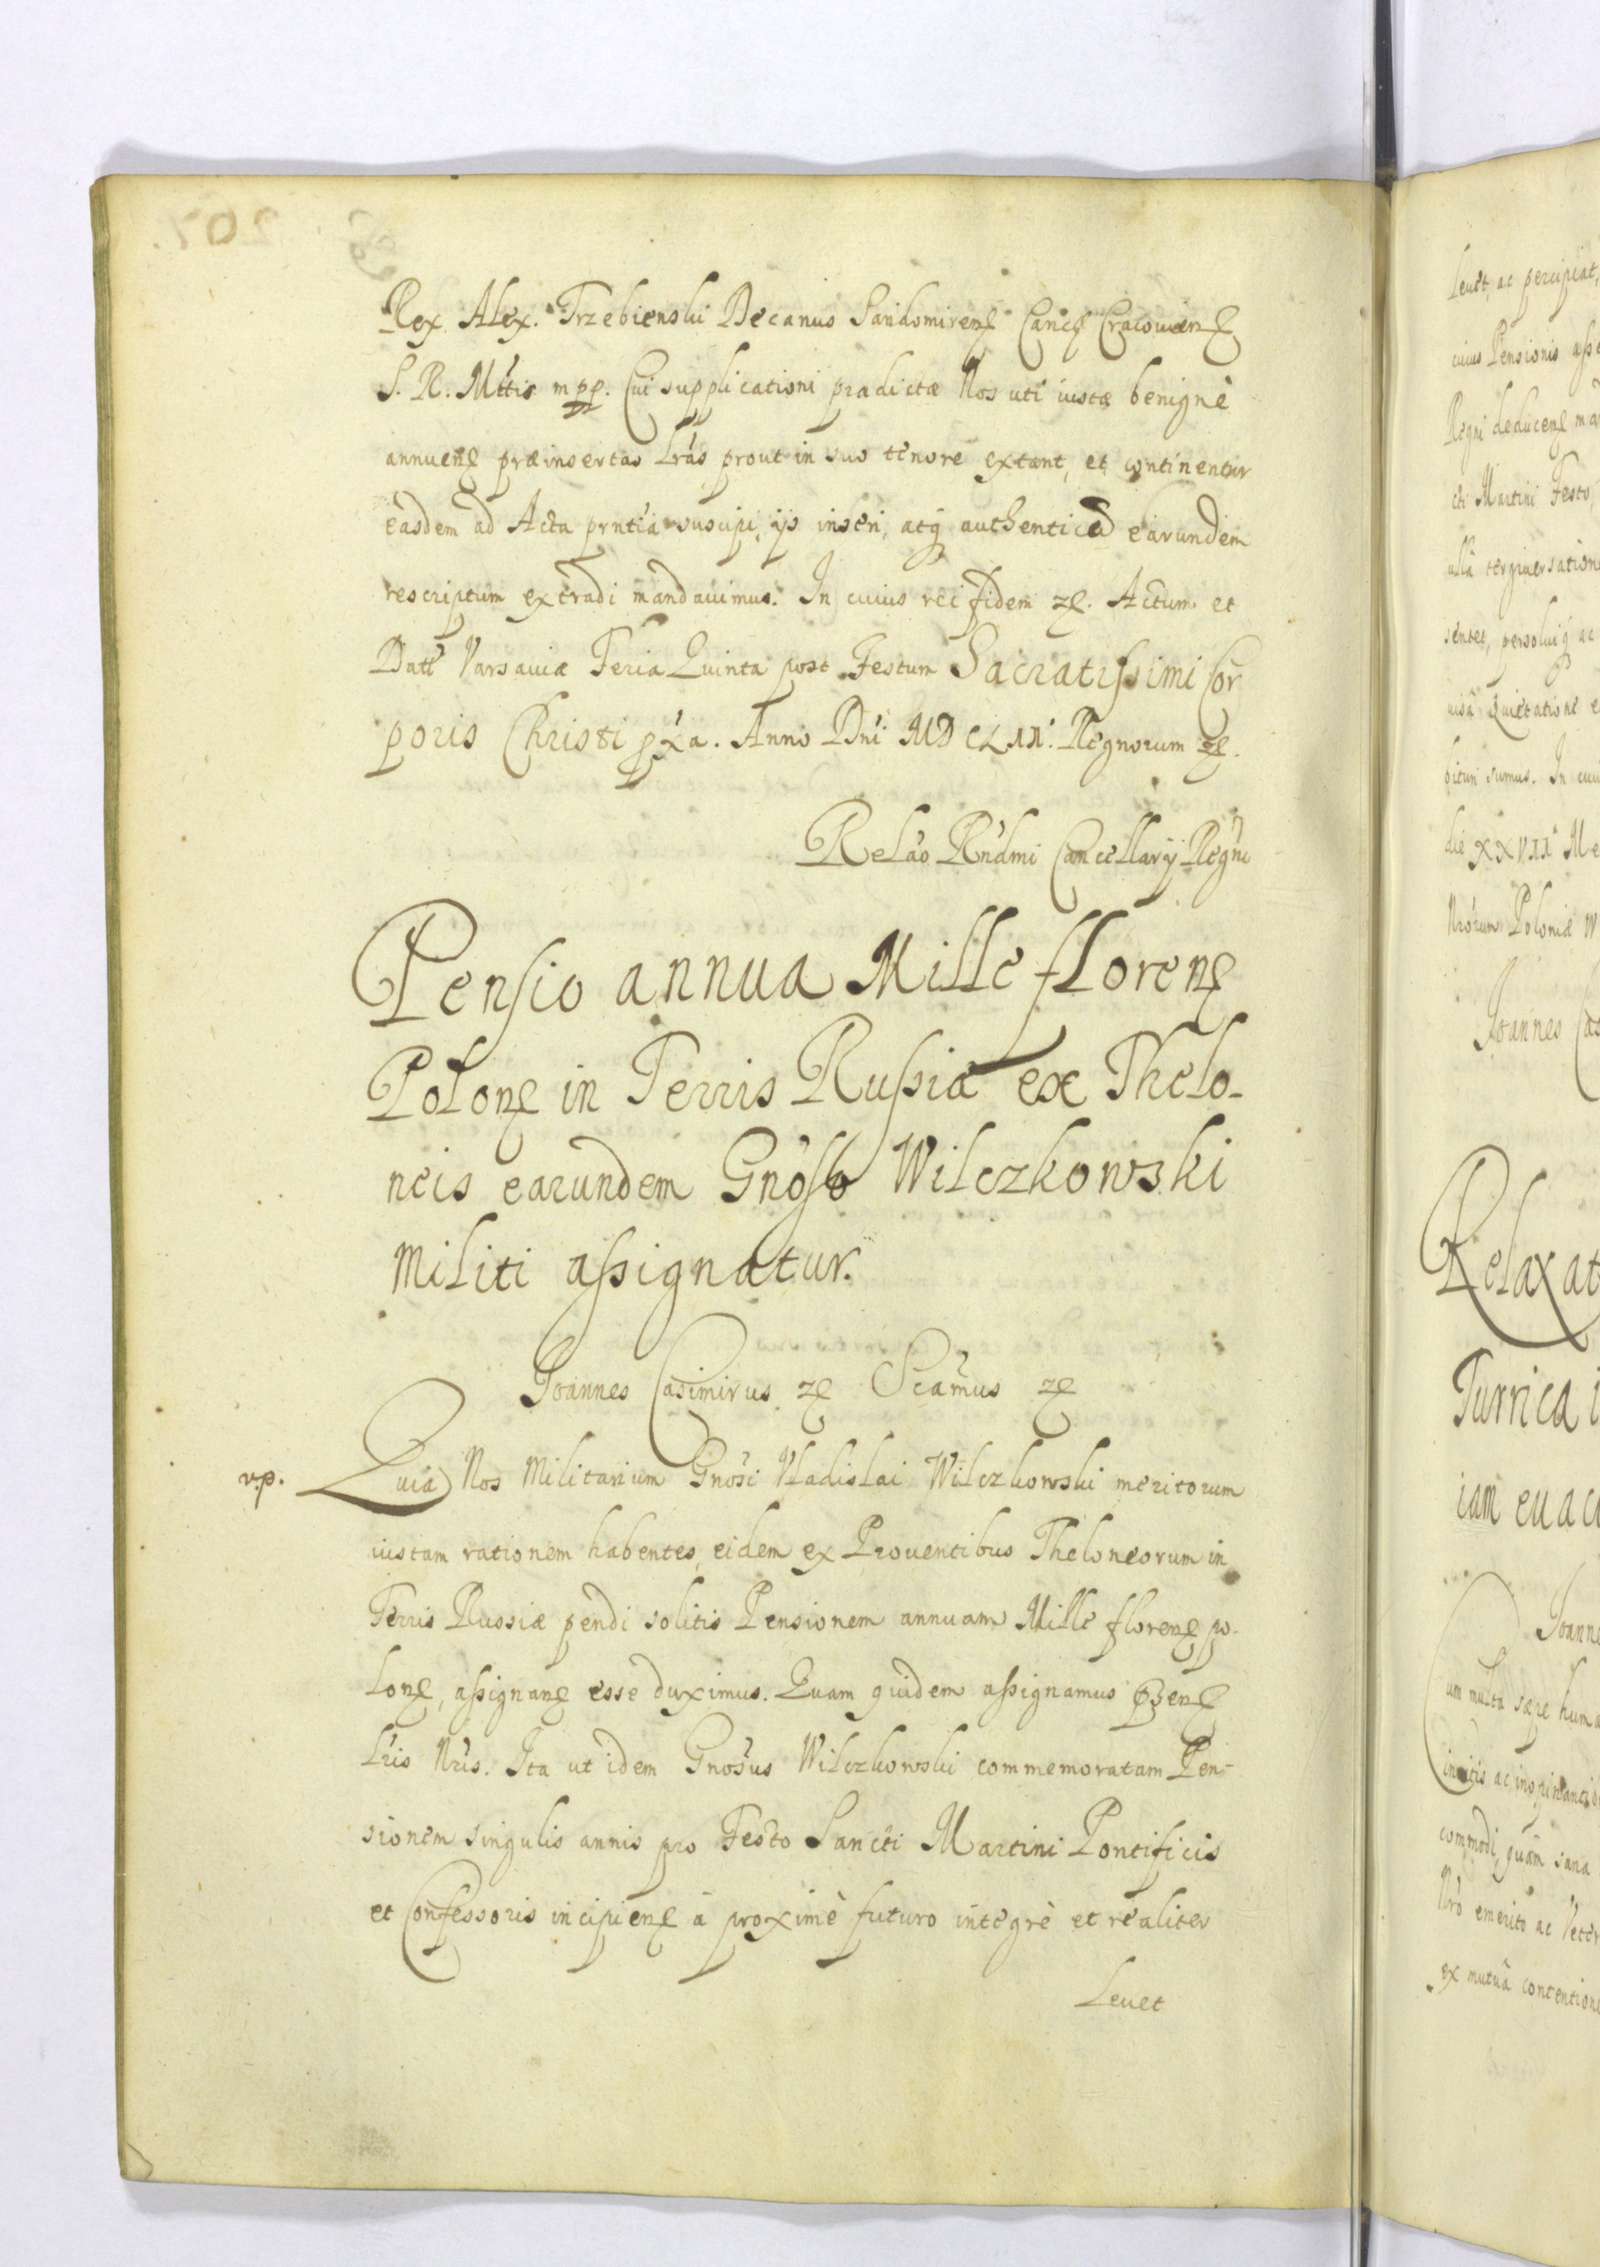 Rex. Alex. Trzebienski Decanus Sandomirens Canc Cracouiens
S. R. Mttis mpp. Cui supplicationi prædictæ Nos uti iustæ benignè
annuens præinsertas Lras prout in suo tenore extant, et continentur
easdem ad Acta prntia suscipi, ijs inseri, atq authenticè earundem
rescriptum extradi mandauimus. In cuius rei fidem &c. Actum et
Datt Varsauiæ Feria Quinta post Festum Sacratissimi Cor
poris Christi pxa. Anno Dni MDCLII. Regnorum &c.
Relao Rndmi Cancellarij Regni
Pensio annua Mille floren
Polon in Terris Russiæ ex Thelo-
neis earundem Gnoso Wilczkowski
Militi assignatur.
Joannes Casimirus &c Scamus &c
v.p. Quia Nos Militarium Gnosi Vladislai Wilczkowski meritorum
iustam rationem habentes, eidem ex Prouentibus Theloneorum in
Terris Russiæ pendi solitis Pensionem annuam Mille floren po-
lon, assignan esse duximus. Quam quidem assignamus pzen
Lris Nris. Ita ut idem Gnosus Wilczkowski commemoratam Pen-
sionem singulis annis pro Festo Sancti Martini Pontificis
et Confessoris incipien à proximè futuro integrè et realiter
Leuet
Leuet, ac percipiat,
cuius Pensionis
Regni deducen
cti Martini Festo,
ullâ tergiuersatione
sentes, persolui ac
uisâ Quietatione
bituri sumus. In
die XXVII Me
Nrorum Poloniæ
Joannes Cas
Relaxat
Turrica
iam euacu
Joanne
um multa sæpe huma
commodi, quam sana
Nro emerito ac Veter
ex mutuâ contentione